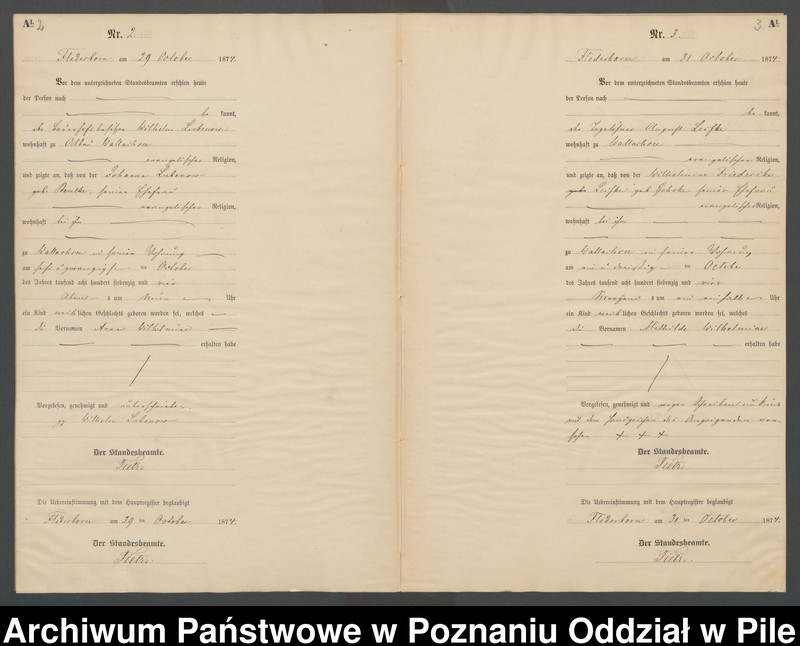 A1. 2
Nr. 2.
Flederborn am 29 October 1874.
Vor dem unterzeichneten Standesbeamten erschien heute
der Person nach
be kannt,
Wilhelm Lubenow
wohnhaft zu Wallachsee
evangelischer Religion,
und zeigte an, daß von der Johanna Lubenow
geb. seiner Ehefrau
evangelischer Religion,
wohnhaft bei ihm
zu Wallachsee in seiner Wohnung
am October
des Jahres tausend acht hundert siebenzig und vier
Abends um neun Uhr
ein Kind weiblichen Geschlechts geboren worden sei, welches
die Vornamen Anna Wilhelmine
erhalten habe
Vorgelesen, genehmigt und unterschrieben
gz Wilhelm Lubenow
Der Standesbeamte.
Die Uebereinstimmung mit dem Hauptregister beglaubigt
Flederborn am 29 ten October 1874.
Der Standesbeamte.
3. A1.
Nr. 3.
Flederborn am 31 October 1874.
Vor dem unterzeichneten Standesbeamten erschien heute
der Person nach
be kannt,
der Tagelöhner August
wohnhaft zu Wallachsee
evangelischer Religion,
und zeigte an, daß von der Wilhelmine Friederike
geb. seiner Ehefrau
evangelischer Religion,
wohnhaft bei ihm
zu Wallachsee in seiner Wohnung
am ein u dreißig ten October
des Jahres tausend acht hundert siebenzig und vier
Morgens um ein einhalb Uhr
ein Kind weiblichen Geschlechts geboren worden sei, welches
die Vornamen Mathilde Wilhelmine
erhalten habe
Vorgelesen, genehmigt und wegen Schreibensunkunde
mit dem Handzeichen des Anzeigenden ver-
sehen + + +
Der Standesbeamte.
Die Uebereinstimmung mit dem Hauptregister beglaubigt
Flederborn am 31 ten October 1874.
Der Standesbeamte.
Archiwum Państwowe w Poznaniu Oddział w Pile